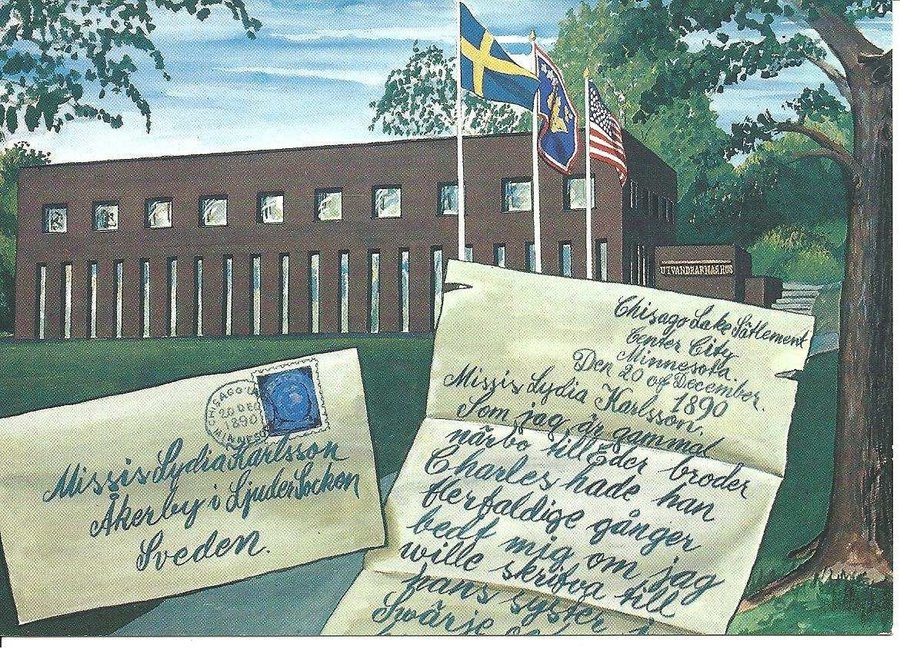 UTVANDRARNAS HUS
Chisago Lake Sätlement
Center City
Minnesota.
Den 20 of December.
1890
Missis Lydia Karlsson.
Som jag är gammad
närbo till Eder broder
Charles hade han
flerfaldige gånger
bedt mig om jag
wille skrifva till
hans syster i
Swärje
CHISAGO LA
20 DEC
1890
MINNESO
Missis Lydia Karlsson
Åkerby i Ljuder Socken
Sveden.